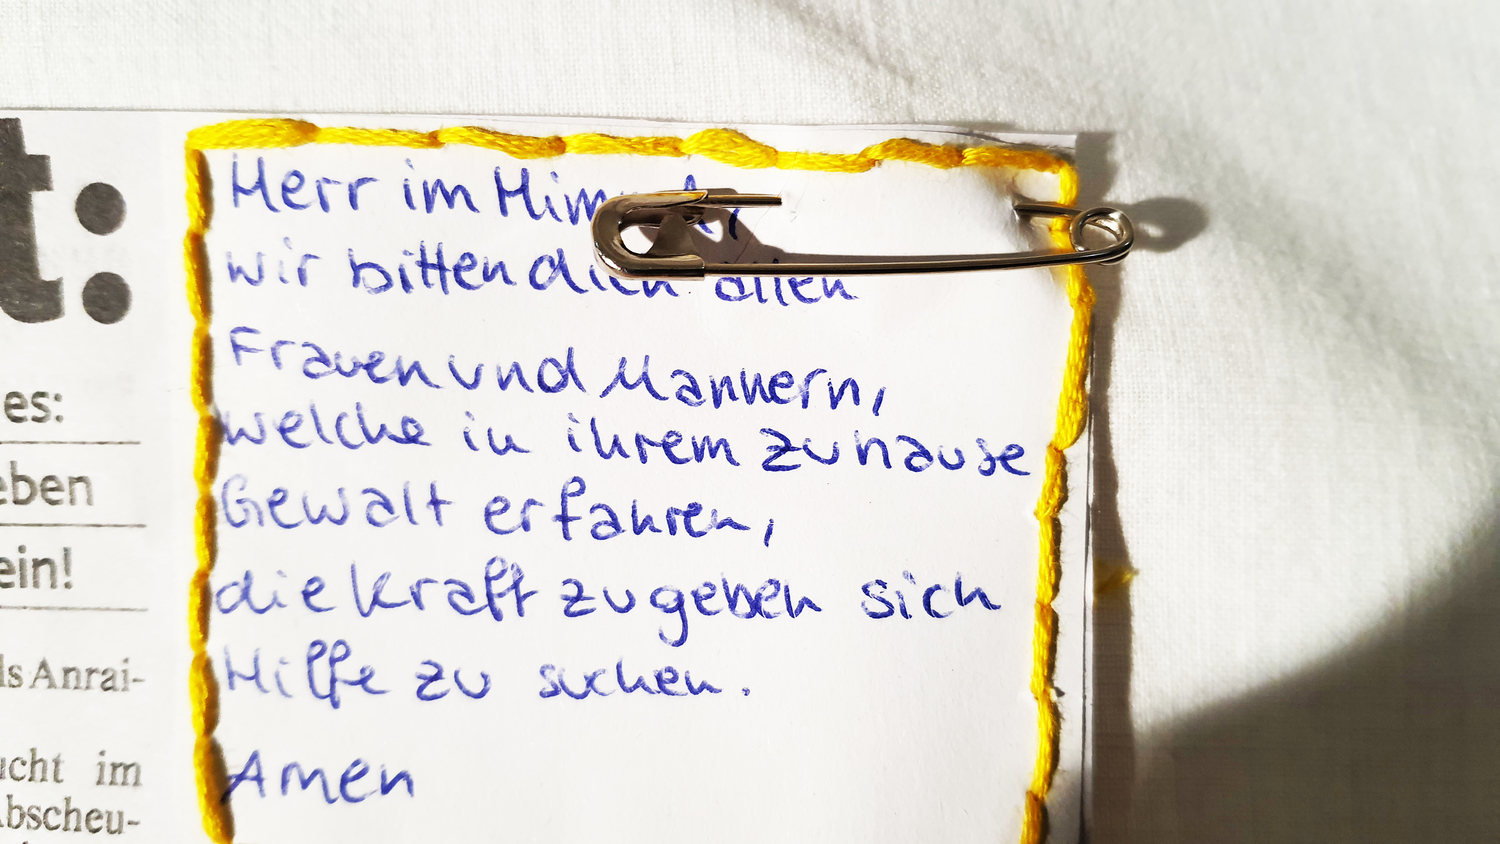 t:
es:
eben
ein!
ls Anrai-
ucht im
Abscheu-
Herr im
wir bitten dich allen
Frauen und Mannern,
welche in ihrem zuhause
Gewalt erfahren,
die Kraft zu geben sich
Hilfe zu suchen.
Amen